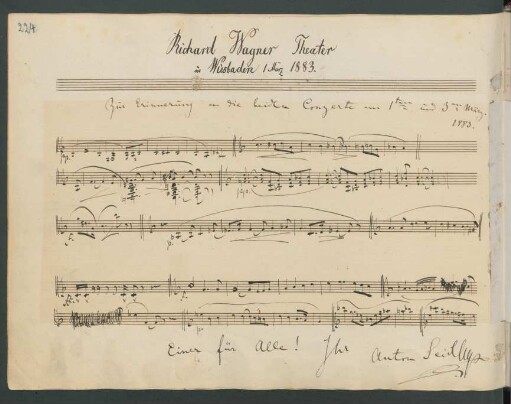 224
Richard Wagner Theater
in Wiesbaden 1 März 1883.
Zur Erinnerung an die beiden Conzerte am 1ten und 3ten März
1883.
Einer für Alle! Ihr Anton Seidl